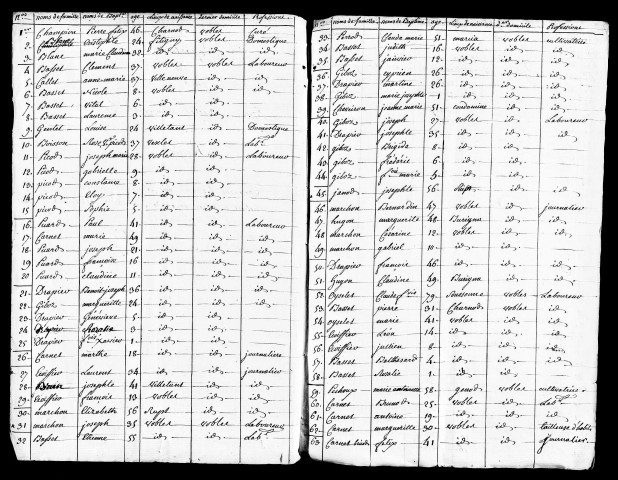 Nos noms de famille noms de Bapt. age Lieux de naissance dernier domicile Professions
1er Champion Pierre félix 46 Charnod vobles Curé
2. 24 vobles Domestique
3. Blanc marie Claudine id id
4. Basset Clement 37 vobles vobles Laboureur
5. anne-marie 37 villeneuve id id
6. Basset Nicole 8 vobles id id
7. Basset vital 6 id id id
8. Basset Laurence 3 id id id
9. Goulet Louise 24 villetant id Domestique
10. Boisson 37 vobles id Labr
11. Picod joseph marie 28 vobles id Laboureur
12. Picod gabrielle 9 id id id
13. picod constance 8 id id id
14. picod Eloy 7 id id id
15. picod Sophie 5 id id id
16. Huard Paul 41 id id Laboureur
17. Carnet marie 49 id id id
18. Huard joseph 21 id id id
19. Huard francois 16 id id id
20. Huard claudine 11 id id id
21. Drapier Benoit joseph 36 id id id
22. Giboz marguerite 24 id id id
23. Drapier Genevieve 5 id id id
24. Drapier 3 id id id
25. Drapier fois Xavier 1 id id id
26. Carnet marthe 18 id id journaliere
27. Coiffier Laurent 34 id id journalier
28. josephte 41 villetant id id
29. Coiffier francois 13 vobles id id
30. marchon Elizabeth 56 id id
31. marchon joseph 35 vobles vobles Laboureur
32. Basset Etienne 55 id id Labr
Nos noms de famille noms de Baptême age Lieux de naissance dr domicile Professions
33. Perod Claude marie 51 vobles cultivatrice
34. Basset judith 16 vobles id id
35. Basset janvier 12 id id id
36. Giboz cyprien 26 id id id
37. Drapier martine 26 id id id
38. Giboz marie josephte id id id
39. Cheviron jeanne marie 51 condamine id id
40. Giboz joseph 27 vobles id Laboureur
41. Drapier josephte 35 id id id
42. giboz Brigide 8 id id id
43. giboz frederic 6 id id id
44. giboz marie 5 id id id
45. janod josephte 56 id id
46. marchon Bernardin 47 vobles id journalier
47. hugon marguerite 48 Burigna id id
48. marchon Cesarine 12 vobles id id
49. marchon gabriel 10 id id id
50. Drapier francois 46 id id id
51. Gugon Claudine 49 Burigna id id
52. Oyselet Claude fois 79 vobles Laboureur
53. Basset pierre 31 Charnod vobles id
54. Oyselet marie 41 vobles id id
55. Coiffier Léon 14 id id id
56. Coiffier jullien 8 id id id
57. Basset Balthazard 4 id id id
58. Basset Rosalie 1 id id id
59. marie antoinette 58 genod vobles cultivatrice
60. Carnet Benoit 25 vobles id Labr
61. Carnet antoine 19 id id id
62. Carnet marguerite 30 vobles id tailleuse d'habits
63. Carnet felix 41 id id journalier